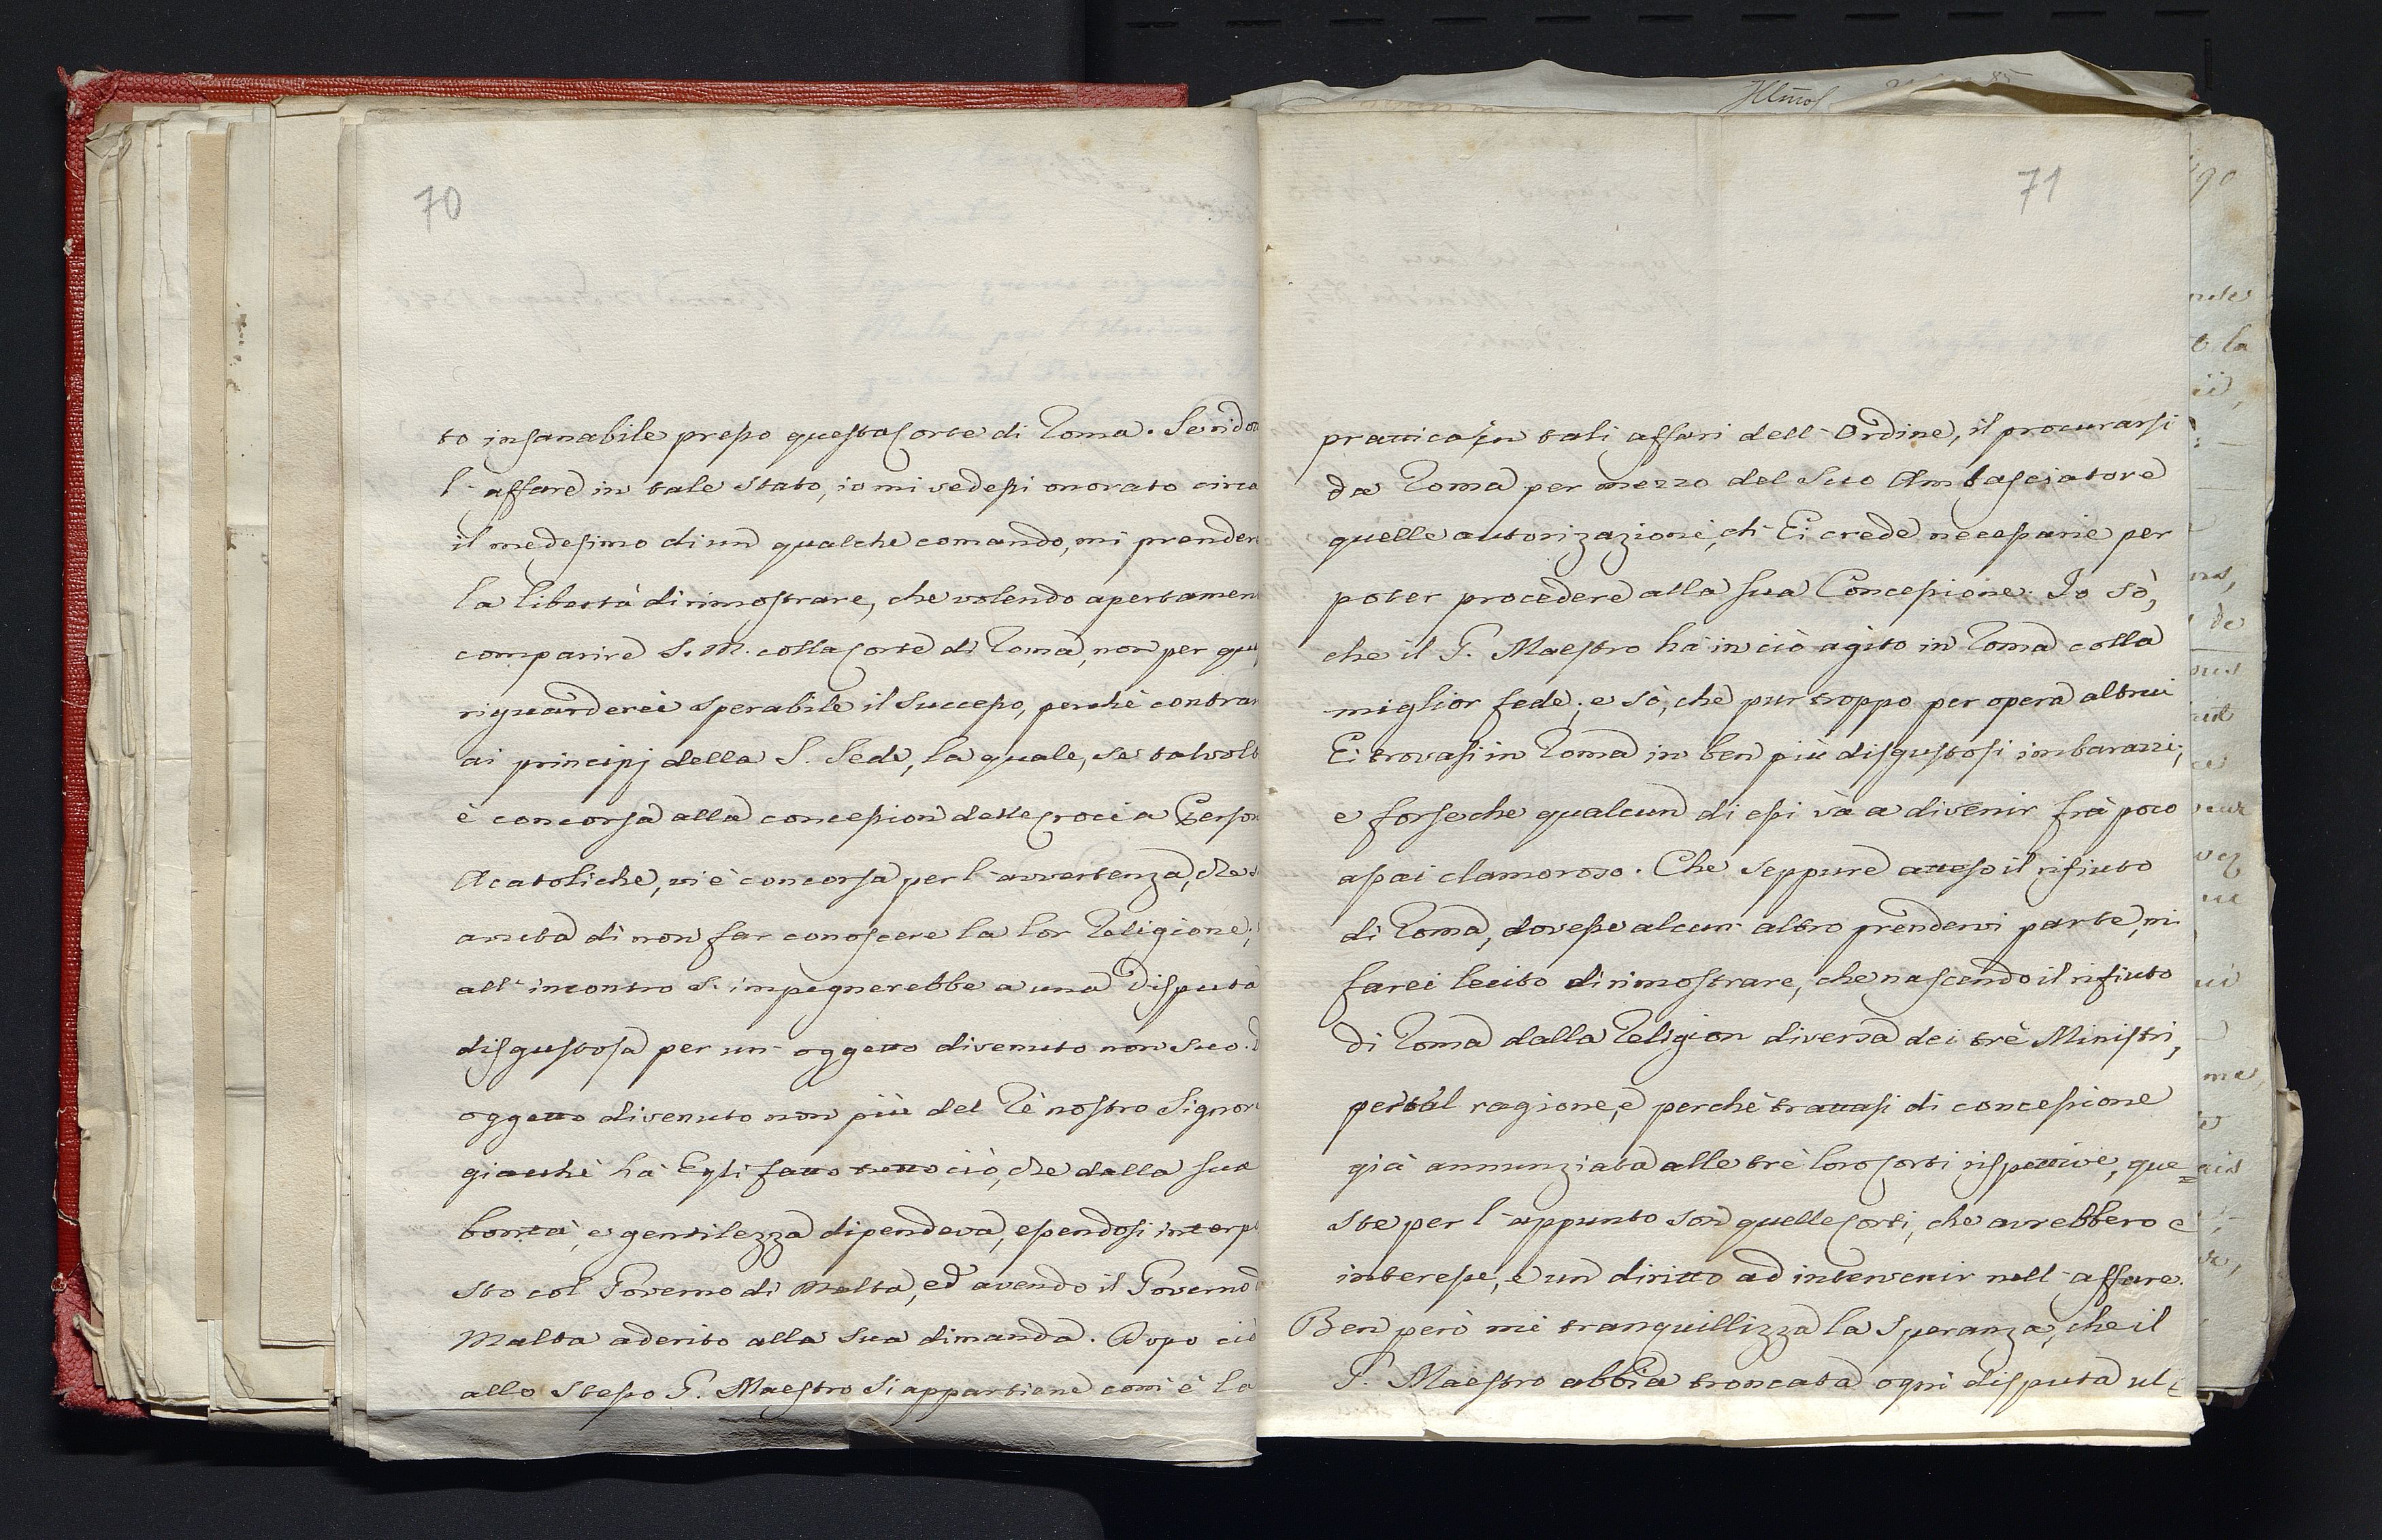 70
to insanabile presso questa Corte di Roma. Se ridot
l'affare in tale stato, io mi vedessi onorato circa
il medesimo di un qualche comando, mi prender
la libertà di rimostrare, che volendo apertamen
comparire S. M. colla Corte di Roma, non per que
riguardere è sperabile il successo, perchè contrar
ai principj della S. Sede, la quale, se talvolt
è concorsa alla concession delle Croci a Person
Acatoliche, vi è concorsa per l'avvertenza, che s
avuta di non far conoscere la lor Religione;
all'incontro s'impegnerebbe a una Disputa
disgustosa per un oggetto divenuto non suo.
oggetto divenuto non più del Rè nostro Signor
giacchè hà Egli fatto tutto ciò, che dalla sua
bontà, e gentilezza dipendeva, essendosi interpo
sto col Governo di Malta, ed avendo il Governo
Malta aderito alla sua dimanda. Dopo ciò
allo stesso G. Maestro si appartiene com'è la
71
prattica in tali affari dell'Ordine, il procurarsi
da Roma per mezzo del Suo Ambasciatore
quelle autorizazioni, ch'Ei crede necessarie per
poter procedere alla sua Concessione. Io sò,
che il G. Maestro hà in ciò agito in Roma colla
miglior fede; e sò, che pur troppo per opera altrui
Ei trovasi in Roma in ben più disgustosi imbarazzi;
e forse che qualcun di essi và a divenir frà poco
assai clamoroso. Che seppure atteso il rifiuto
di Roma, dovesse alcun altro prendervi parte, mi
farei lecito di rimostrare, che nascendo il rifiuto
di Roma dalla Religion diversa dei trè Ministri,
per tal ragione, e perchè trattasi di concessione
già annunziata alle trè loro Corti rispettive, que=
ste per l'appunto son quelle Corti, che avrebbero
interesse, e un diritto ad intervenir nell'affare.
Ben però mi tranquillizza la speranza, che il
G. Maestro abbia troncata ogni disputa ul=